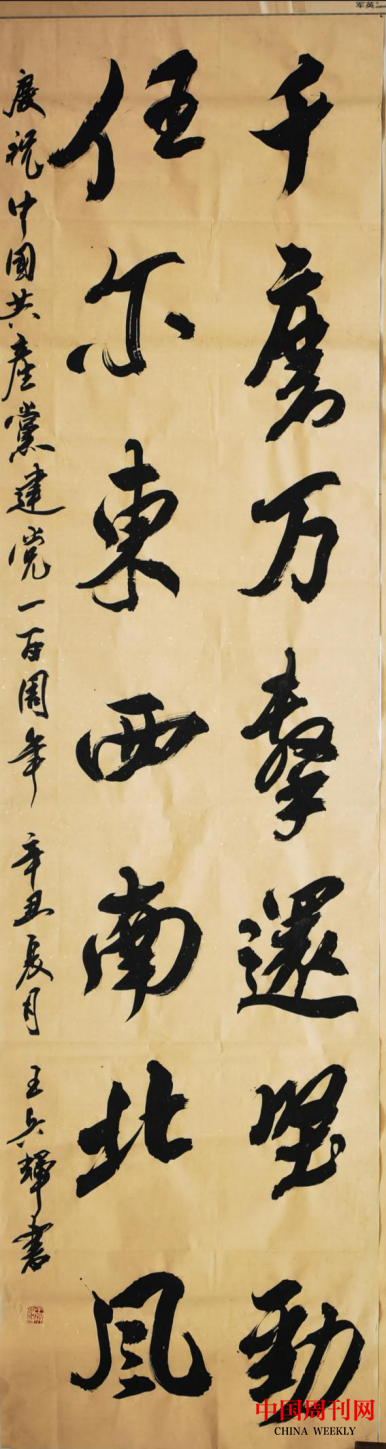 千磨万擊還堅勁
任尔東西南北風
慶祝中國共產黨建党一百周年 辛丑夏月 王兵輝書
中国周刊网
CHINA WEEKLY